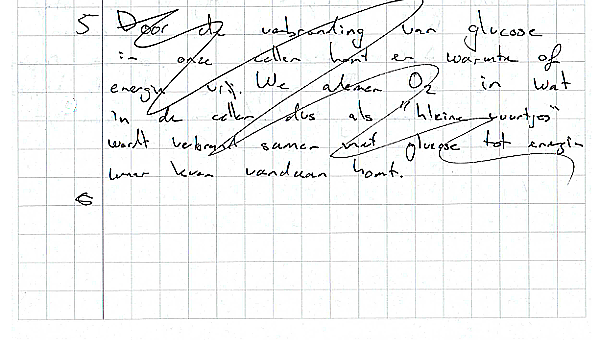 5 Door de verbranding van glucose
in onze cellen komt er warmte of
energie vrij. We ademen O2 in wat
in de cellen dus als "kleine vuurtjes"
wordt verbrand samen met glucose tot energie
waar leven vandaan komt.
6